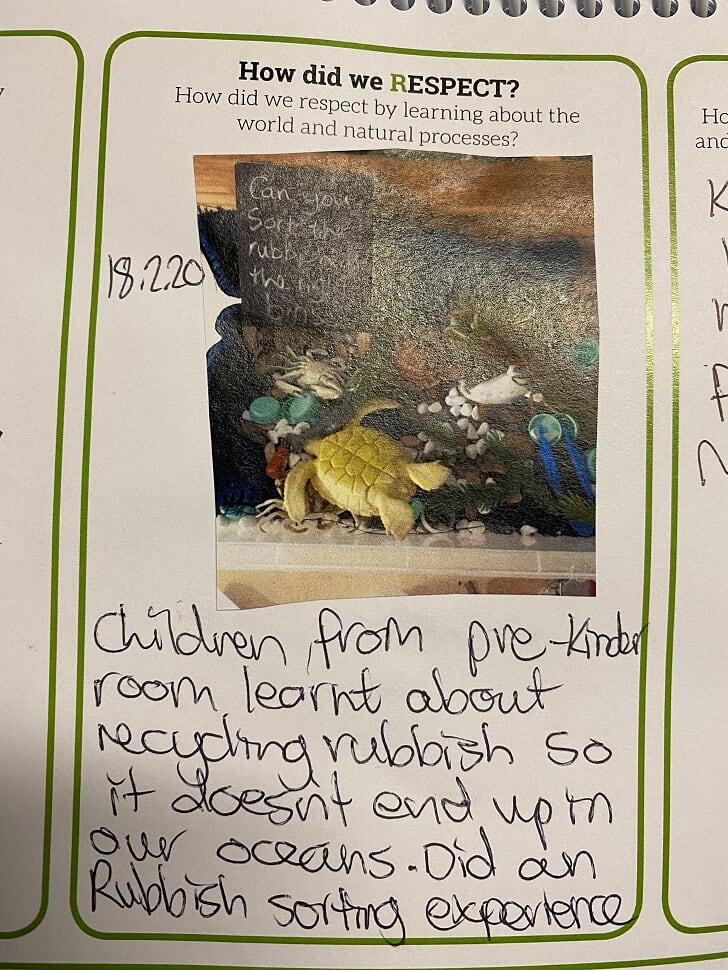 How did we RESPECT?
How did we respect by learning about the
world and natural processes?
Can you
Sort the
rubbish
the right
bins
18.2.20
Children from pre-kinder
room learnt about
recycling rubbish so
it doesn't end up in
our oceans. Did an
Rubbish sorting experience
Ho
and